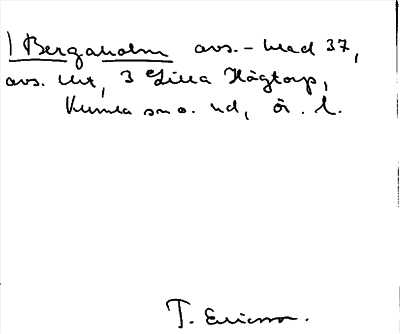 ) Bergaholm avs. - blad 37,
avs. utr, 3 Lilla Högtorp,
Kumla sn o. hd, ör. l.
T. Ericsson.